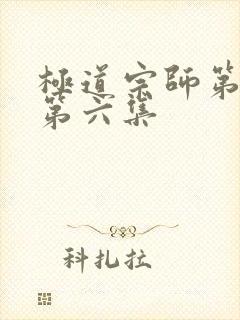 極道宗師第
第六集
科扎拉